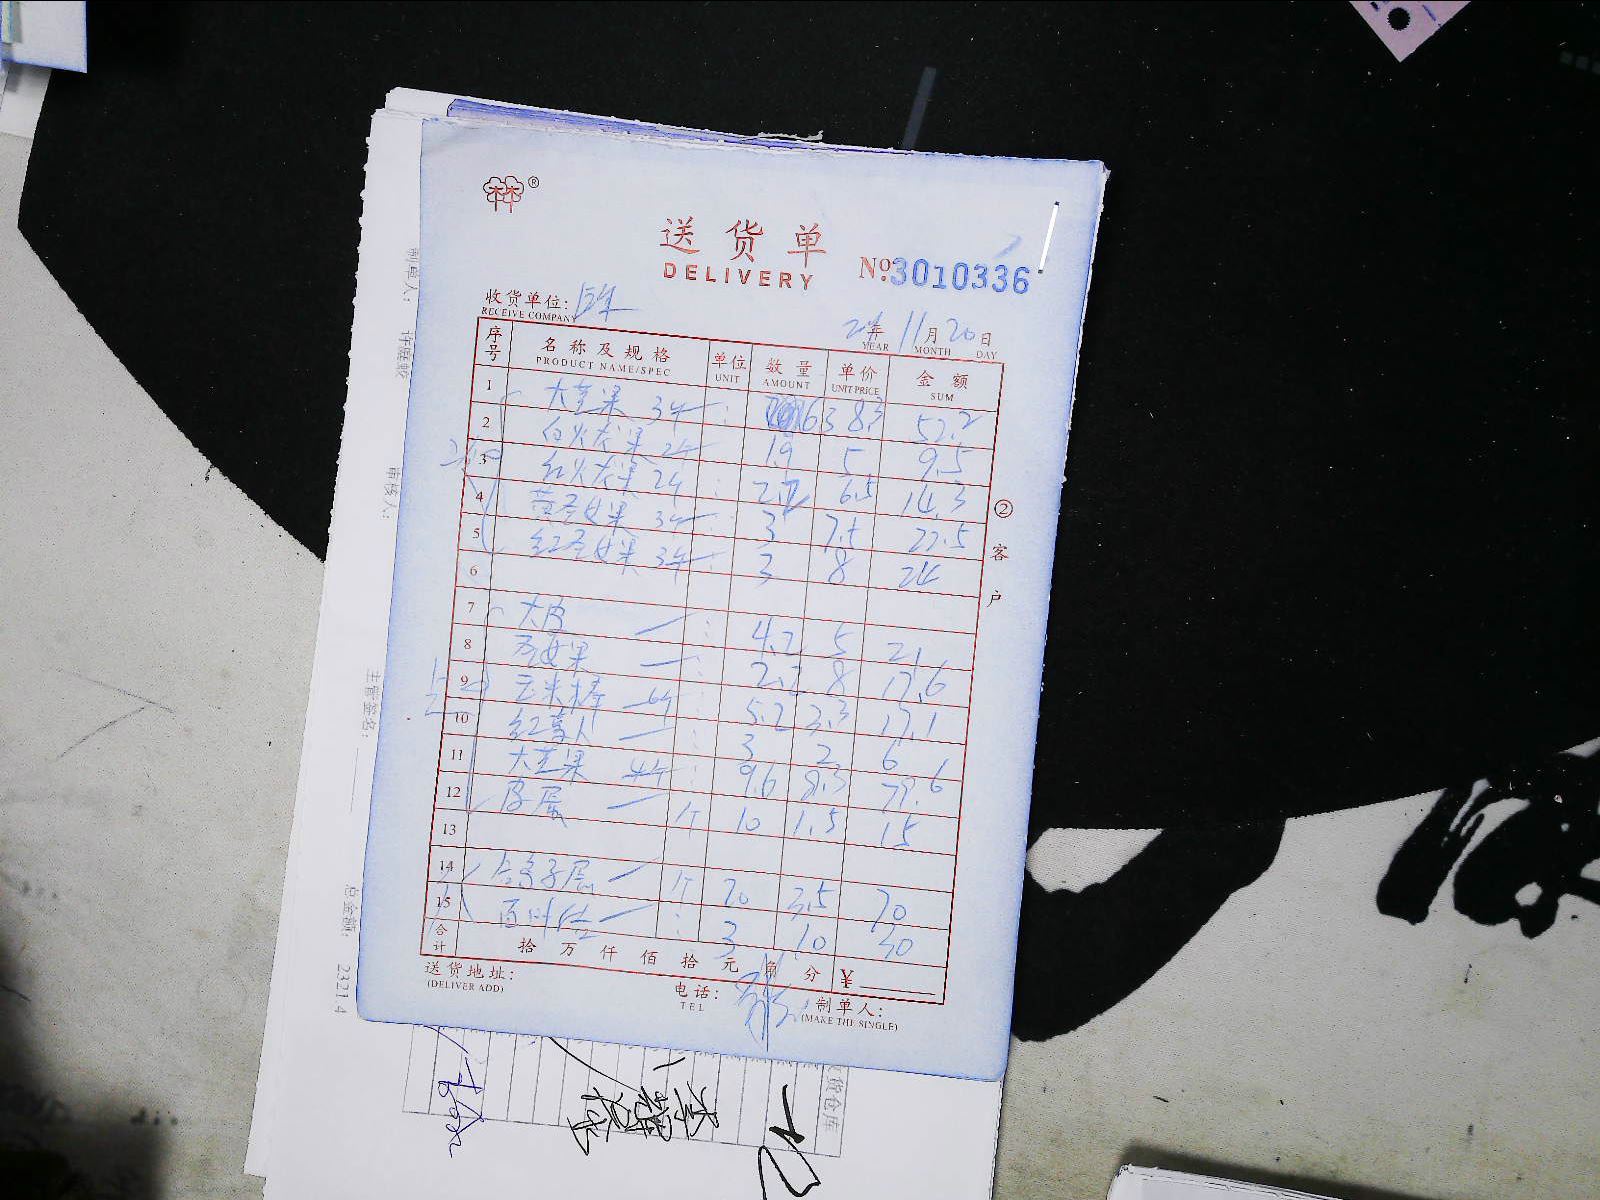 送货单
DELIVERY
№:3010336
收货单位:
RECEIVE COMPANY
24年 11月 20日
YEAR MONTH DAY
序号 名称及规格 单位 数量 单价 金额
PRODUCT NAME/SPEC UNIT AMOUNT UNIT PRICE SUM
1 大苹果 3个 : 6.3 8.3 52.2
2 白火龙果 2个 1.9 5 9.5
3 红火龙果 2个 : 2.2 6.5 14.3
4 黄圣女果 3个 : 3 7.5 22.5
5 红圣女果 3个 : 3 8 24
6
7 大皮 : 4.2 5 21
8 圣女果 : 2.2 8 17.6
9 玉米棒 6个 : 5.2 3.3 17.1
10 红薯 : 3 2 6
11 大苹果 4个 : 9.6 8.3 79.6
12 个 10 1.5 15
13
14 个 20 3.5 70
15 百叶 : 3 10 30
合计 拾 万 仟 佰 拾 元 角 分 ¥
送货地址:
(DELIVER ADD)
电话:
TEL
制单人:
(MAKE THE SINGLE)
②客户
制单人:
审核人:
主管签名:
总金额: 2321.4
货仓库